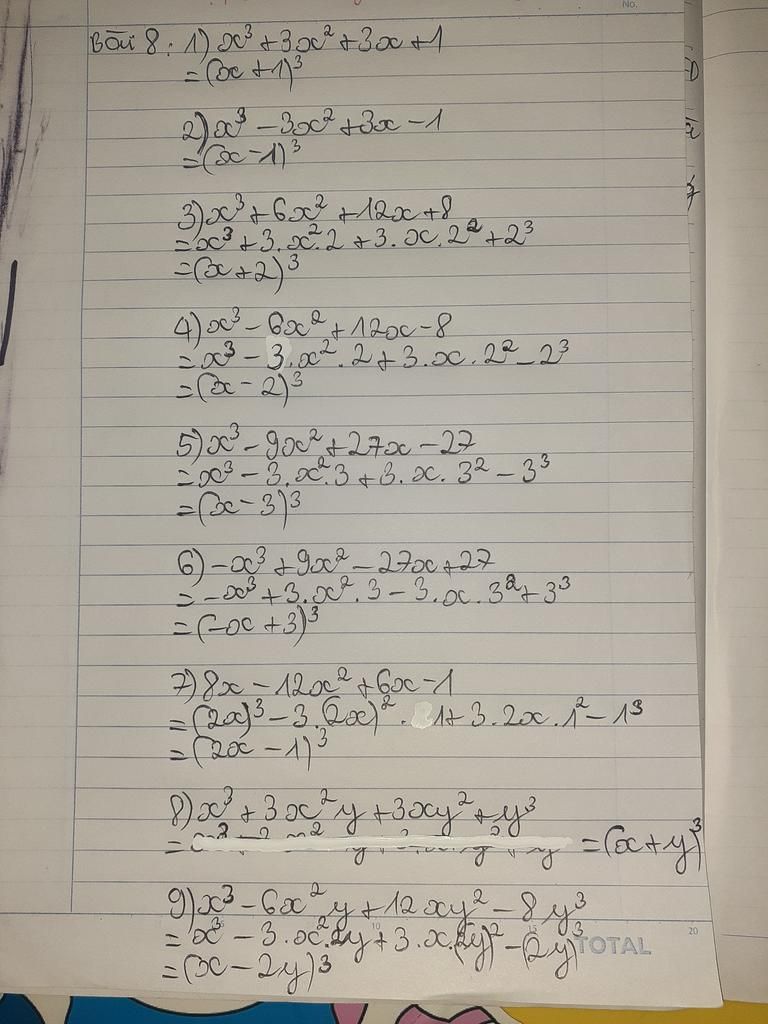 No.
Bài 8: 1) x³ + 3x² + 3x + 1
= (x + 1)³
2) x³ - 3x² + 3x - 1
= (x - 1)³
3) x³ + 6x² + 12x + 8
= x³ + 3.x².2 + 3.x.2² + 2³
= (x + 2)³
4) x³ - 6x² + 12x - 8
= x³ - 3.x².2 + 3.x.2² - 2³
= (x - 2)³
5) x³ - 9x² + 27x - 27
= x³ - 3.x².3 + 3.x.3² - 3³
= (x - 3)³
6) -x³ + 9x² - 27x + 27
= -x³ + 3.x².3 - 3.x.3² + 3³
= (-x + 3)³
7) 8x - 12x² + 6x - 1
= (2x)³ - 3.(2x)².1 + 3.2x.1² - 1³
= (2x - 1)³
8) x³ + 3x²y + 3xy² + y³
= = (x + y)³
9) x³ - 6x²y + 12xy² - 8y³
= x³ - 3.x².2y + 3.x.(2y)² - (2y)³
= (x - 2y)³
10 15 20
TOTAL